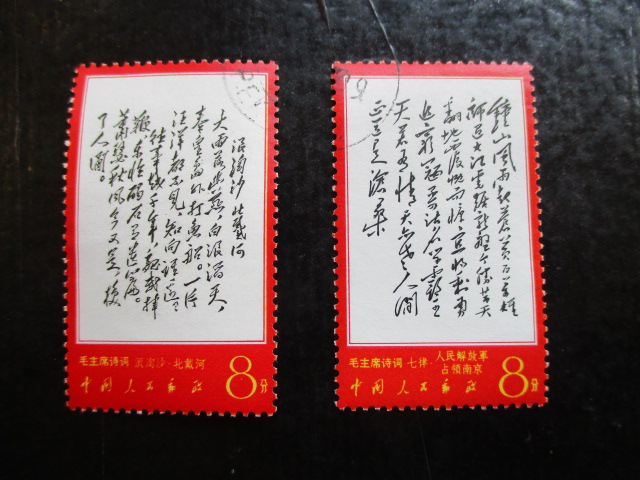 浪淘沙 北戴河
大雨落幽燕,白浪滔天,
秦皇島外打魚船。一片
汪洋都不見,知向誰邊?
往事越千年,魏武揮
鞭,東臨碣石有遺篇。
蕭瑟秋風今又是,換
了人間。
毛主席诗词 浪淘沙·北戴河
中国人民邮政 8分
鐘山風雨起蒼黄百万雄
師過大江虎踞龍盤今勝昔天
翻地覆慨而慷宜將剩勇
追窮寇不可沽名學霸王
天若有情天亦老人間
正道是滄桑
毛主席诗词 七律·人民解放軍
占領南京
中国人民邮政 8分